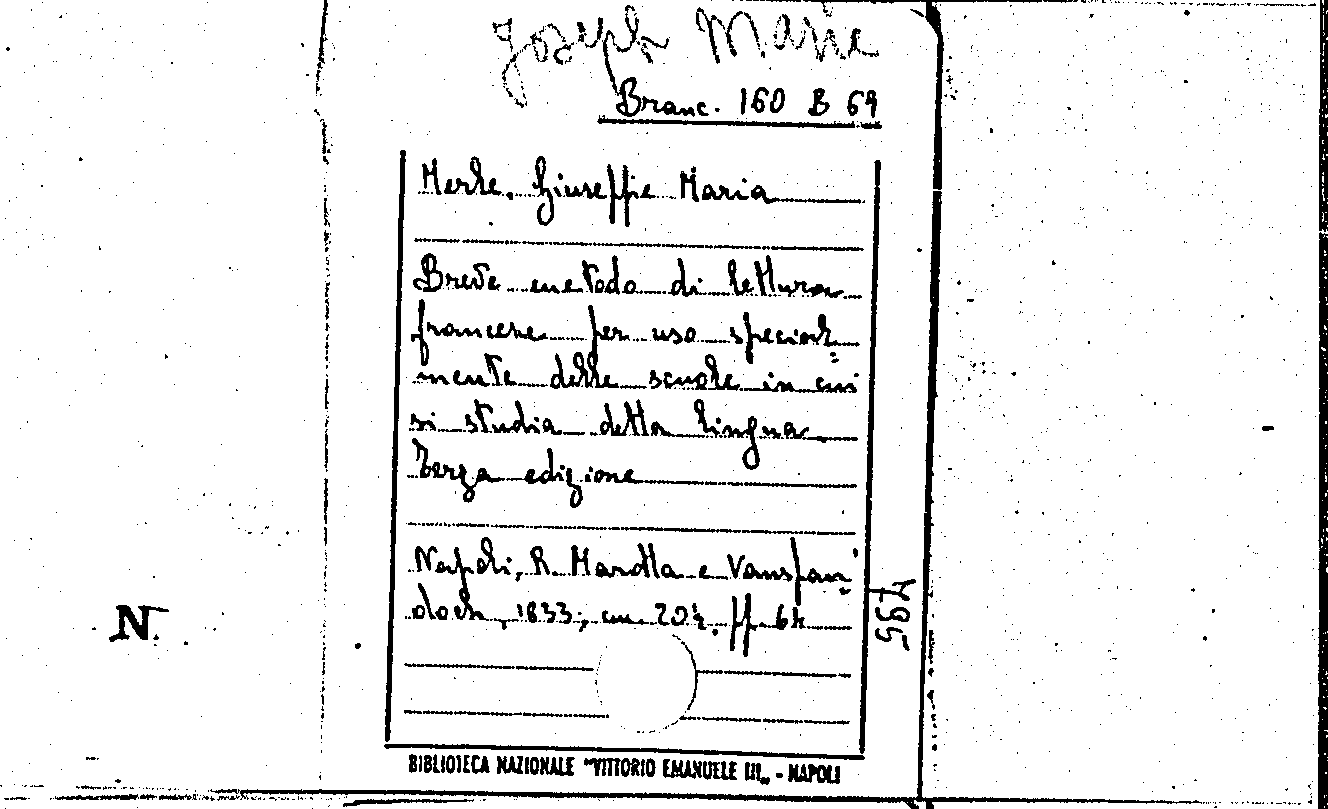 Joseph Marie
Branc. 160 B 69
Merle, Giuseppe Maria
Breve metodo di lettura
francese per uso special=
mente delle scuole in cui
si studia detta lingua
Terza edizione
Napoli, R. Marotta e Vanspan=
doch, 1833; cm. 20½. pp. 64
795
N.
BIBLIOTECA NAZIONALE "VITTORIO EMANUELE III„ - NAPOLI